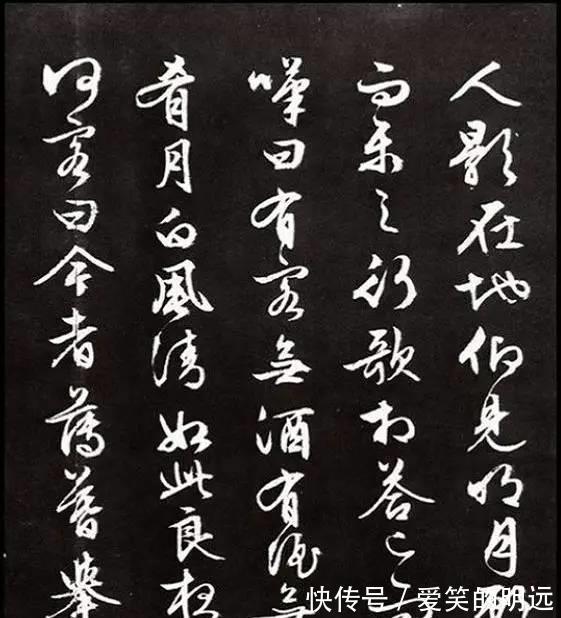 人影在地仰見明月顧
而樂之行歌相答已而
嘆曰有客無酒有酒無
肴月白風清如此良夜
何客曰今者薄暮舉
快传号 / 爱笑的明远